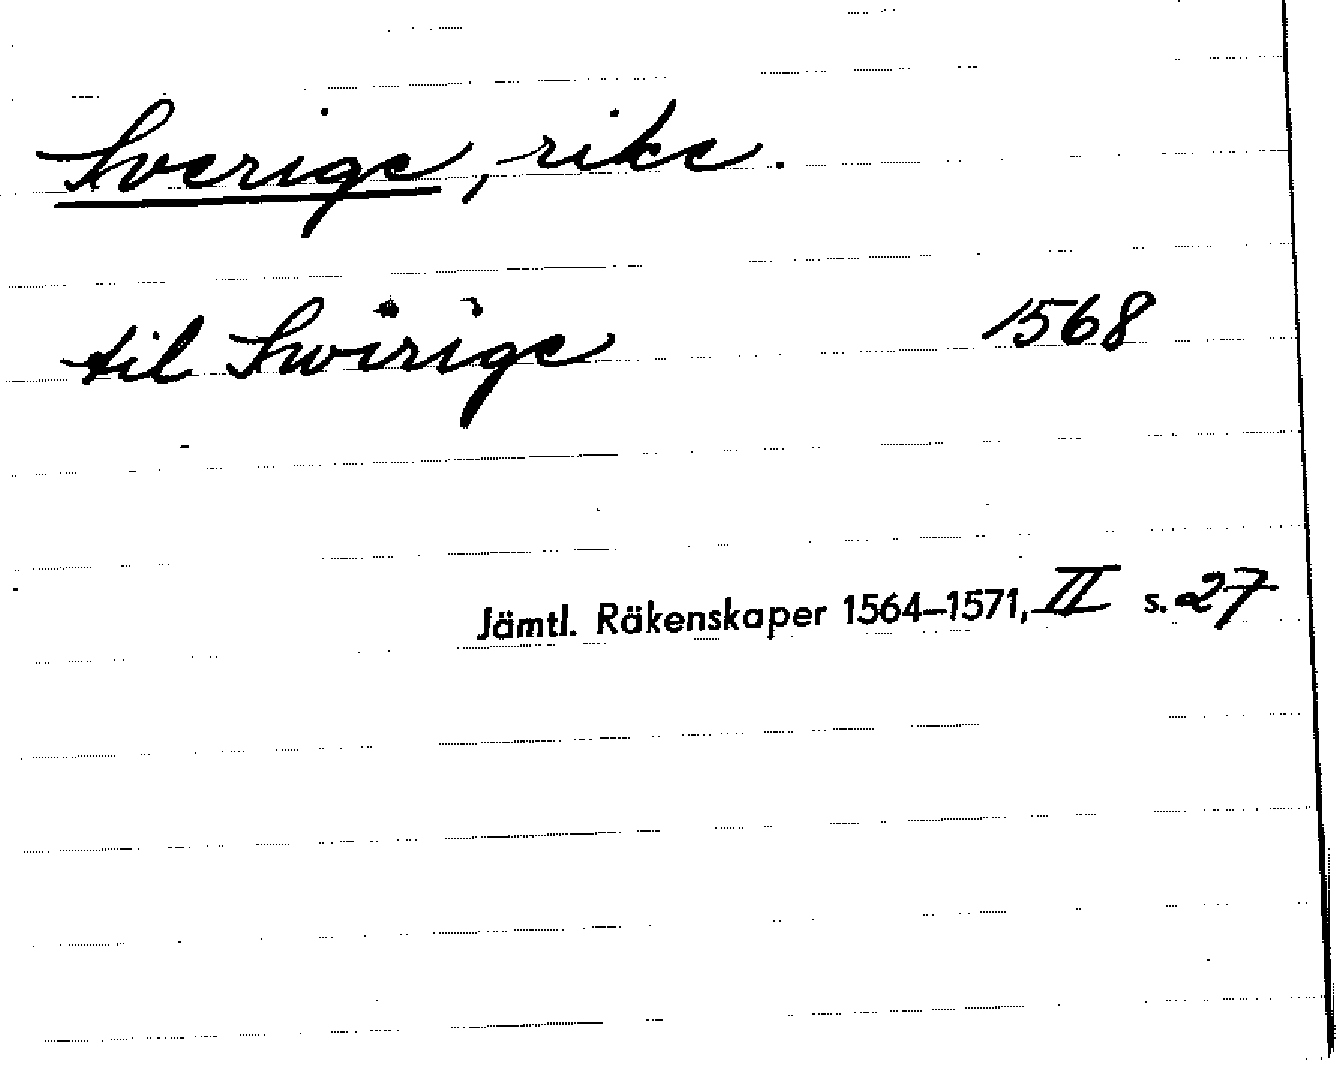 Sverige, rike.
til Swirige 1568
Jämtl. Räkenskaper 1564–1571, II s. 27